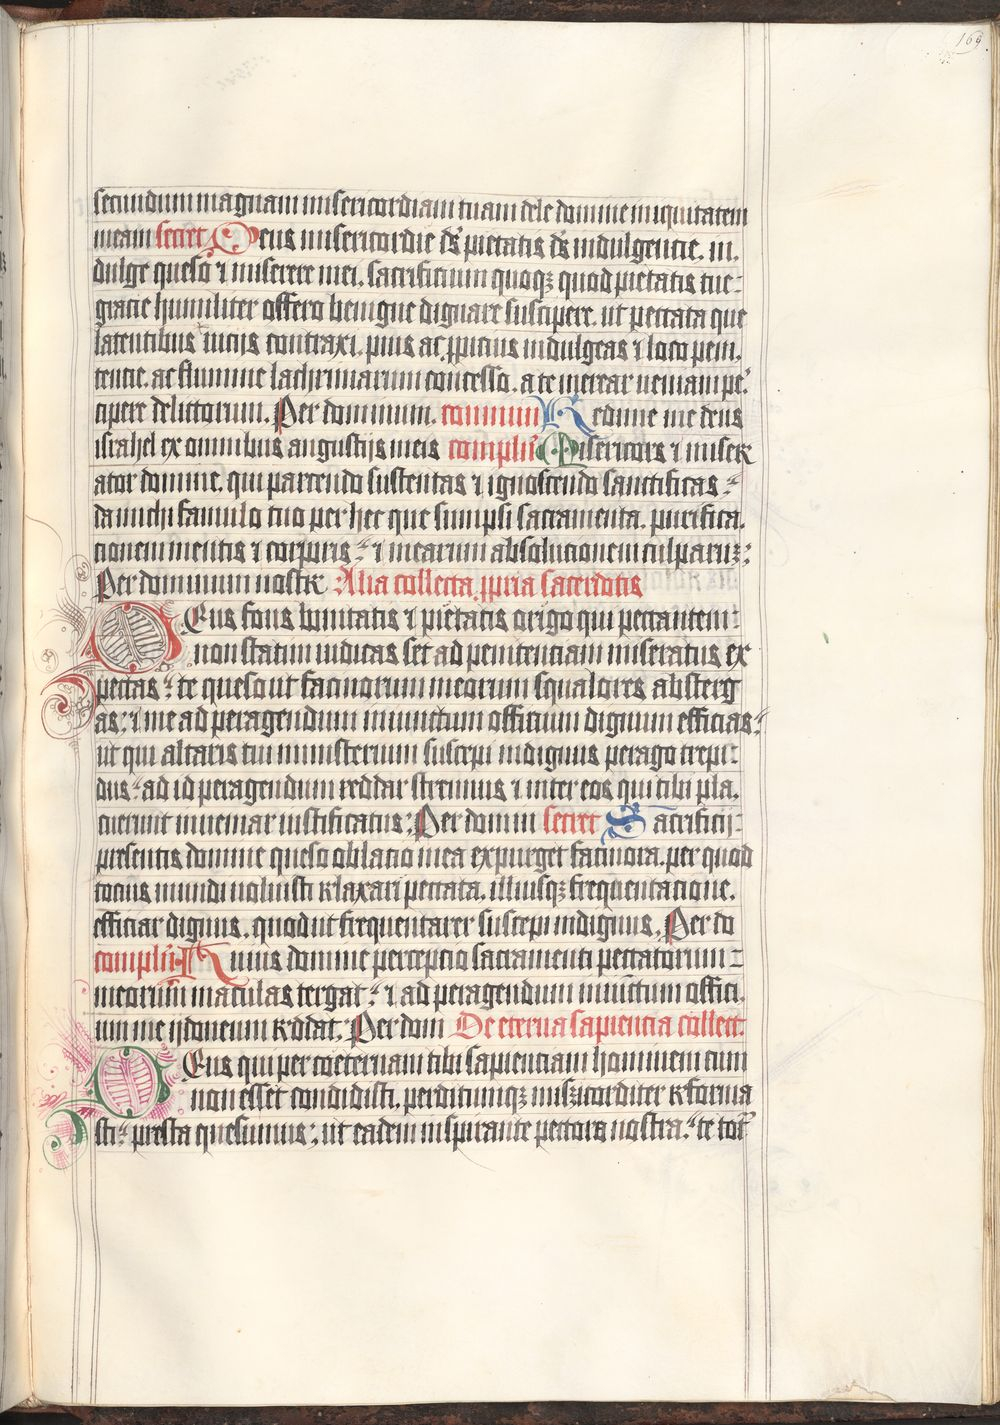 169
secundum magnam misericordiam tuam dele domine iniquitatem
meam secret Deus misericordie ds̄ pietatis ds̄ indulgencie. in,
dulge queso ⁊ miserere mei. sacrificium quoqꝫ quod pietatis tue-
gracie humiliter offero benigne dignare suscipere. ut peccata que
latentibus uicijs contraxi. pius ac ꝓpicius indulgeas ⁊ loco peni,
tencie. ac flumine lachrimarum concesso. a te merear ueniam per,
cipere delictorum. Per dominum. commun Redime me deus
israhel ex omnibus angustijs meis complēn Misericors ⁊ miser
ator domine. qui parcendo sustentas ⁊ ignoscendo sanctificas:
da michi famulo tuo per hec que sumpsi sacramenta. purifica,
cionem mentis ⁊ corporis: ⁊ mearum absolucionem culparuꝫ:
Per dominum nostr Alia collecta ꝓpria sacerdotis
DEus fons bonitatis ⁊ pietatis origo qui peccantem:
non statim iudicas set ad penitenciam miseratus ex
pectas: te queso ut facinorum meorum squalores absterg
as: ⁊ me ad peragendum iniunctum officium dignum efficias:
ut qui altaris tui ministerium suscepi indignus perago trepi:
dus: ad id peragendum reddar strenuus ⁊ inter eos qui tibi pla,
cuerunt inueniar iustificatus: Per domin secret Sacrificij:
presentis domine queso oblacio mea expurget facinora. per quod
tocius mundi uoluisti relaxari peccata. illiusqꝫ frequentacione.
efficiar dignus. quod ut frequentarer suscepi indignus. Per do
complēn Huius domine percepcio sacramenti peccatorum:
meorum maculas tergat: ⁊ ad peragendum iniunctum offici,
um me ijdoneum reddat. Per dom De eterna sapiencia collect:
DEus qui per coeternam tibi sapienciam hominem cum
non esset condidisti. perditumqꝫ misericorditer reforma
sti: presta quesumus: ut eadem inspirante pectora nostra: te tot̄